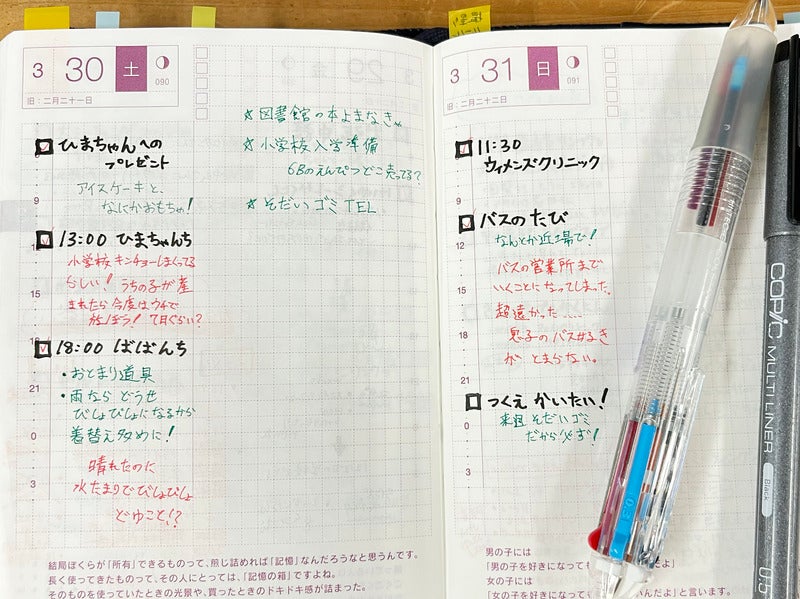 3 30 土
090
旧:二月二十一日
ひまちゃんへの
プレゼント
アイスケーキと、
なにかおもちゃ!
9
13:00 ひまちゃんち
12
小学校キンチョーしまくってる
らしい! うちの子が産
まれたら今度はウチで
放ぼう! 7月ぐらい?
15
18:00 ばばんち
・おとまり道具
21
・雨なら どうせ
びしょびしょになるから
0
着替え多めに!
晴れたのに
3
水たまりでびしょびしょ
どゆこと!?
☆図書館の本よまなきゃ
☆小学校入学準備
6Bのえんぴつどこ売ってる?
☆そだいゴミTEL
結局ぼくらが「所有」できるものって、煎じ詰めれば「記憶」なんだろうなと思うんです。
長く使ってきたものって、その人にとっては、「記憶の箱」ですよね。
そのものを使っていたときの光景や、買ったときのドキドキ感が詰まった。
3 31 日
091
旧:二月二十二日
11:30
ウィメンズクリニック
9
バスのたび
12
なんとか近場で!
バスの営業所まで
15
いくことになってしまった。
超遠かった....
18
息子のバスせき
が とまらない。
21
つくえ かいたい!
0
来週 そだいゴミ
だから必ず!
3
男の子には
「男の子を好きになっても
だよ」
女の子には
「女の子を好きになって
いんだよ」と言います。
COPIC MULTI LINER
Black
0.5